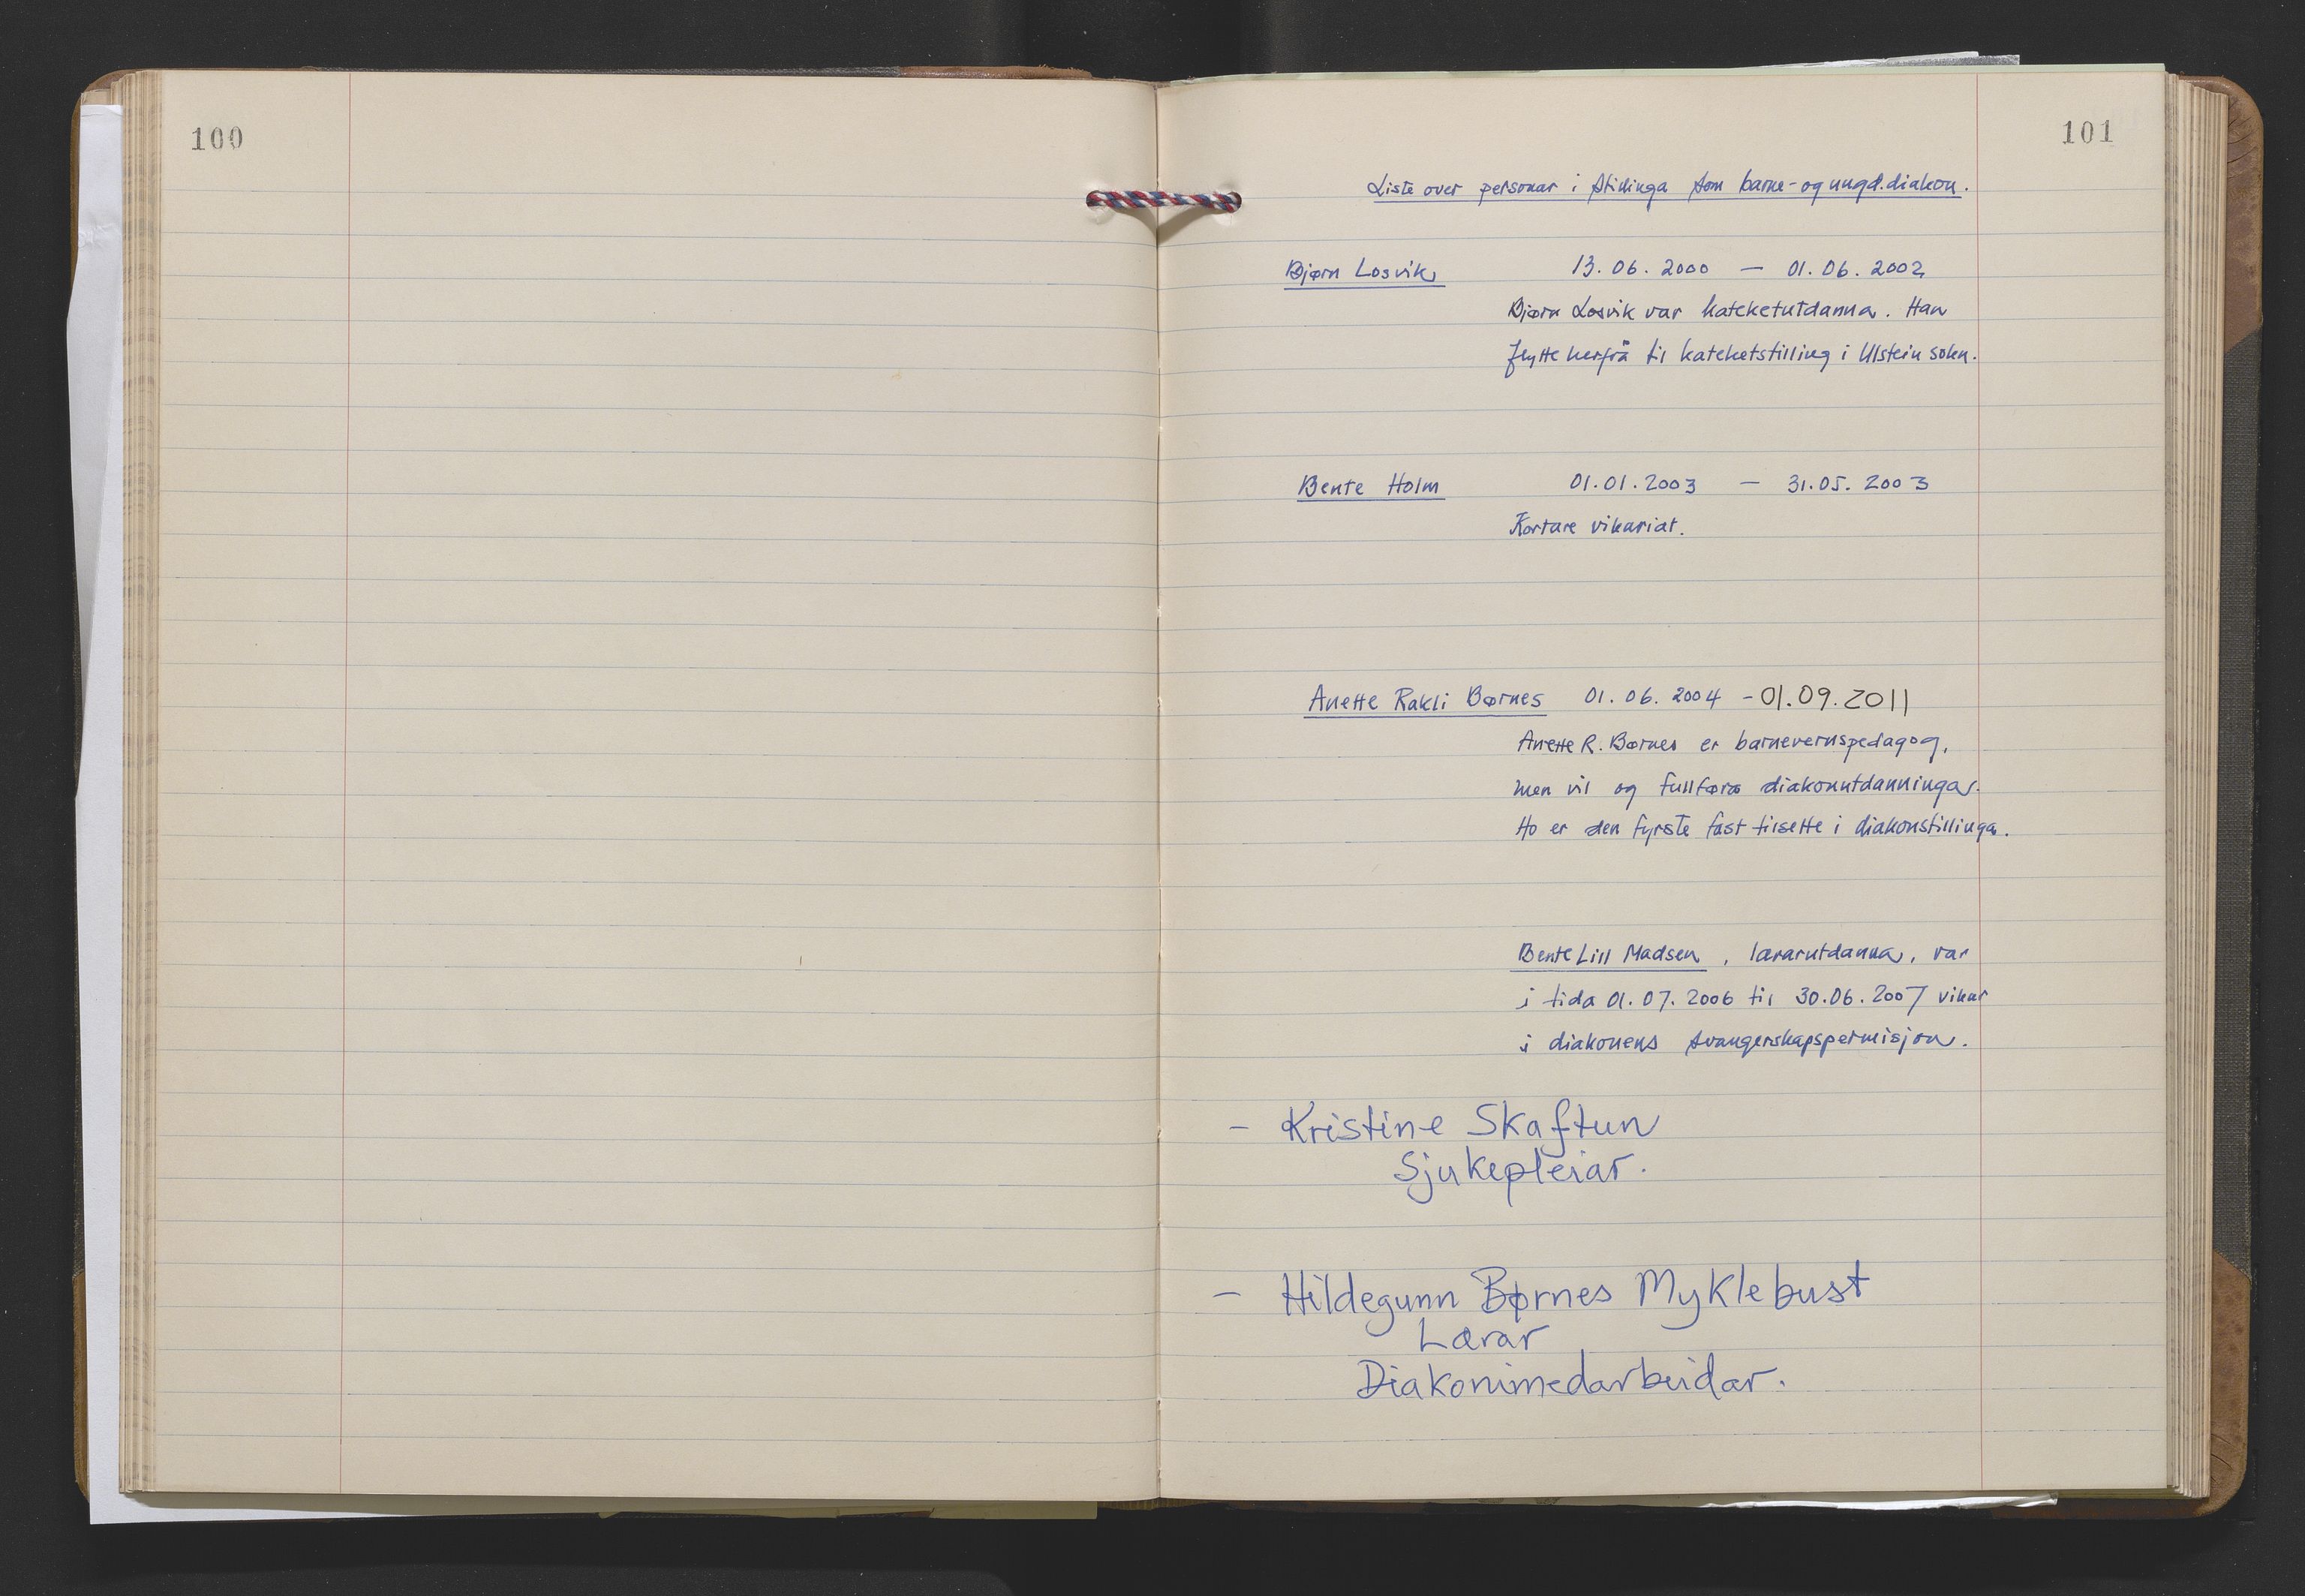 100
101
Liste over personar i stillinga som barne- og ungd.diakon.
Bjørn Losvik 13.06.2000 — 01.06.2002
Bjørn Losvik var kateketutdanna. Han
flytte herfrå til kateketstilling i Ulstein sokn.
Bente Holm 01.01.2003 — 31.05.2003
Kortare vikariat.
Anette Rakli Børnes 01.06.2004 - 01.09.2011
Anette R. Børnes er barnevernspedagog,
men vil og fullføra diakonutdanninga.
Ho er den fyrste fast tilsette i diakonstillinga.
Bente Lill Madsen, lærarutdanna, var
i tida 01.07.2006 til 30.06.2007 vikar
i diakonens svangerskapspermisjon.
- Kristine Skaftun
Sjukepleiar.
- Hildegunn Børnes Myklebust
Lærar
Diakonimedarbeidar.